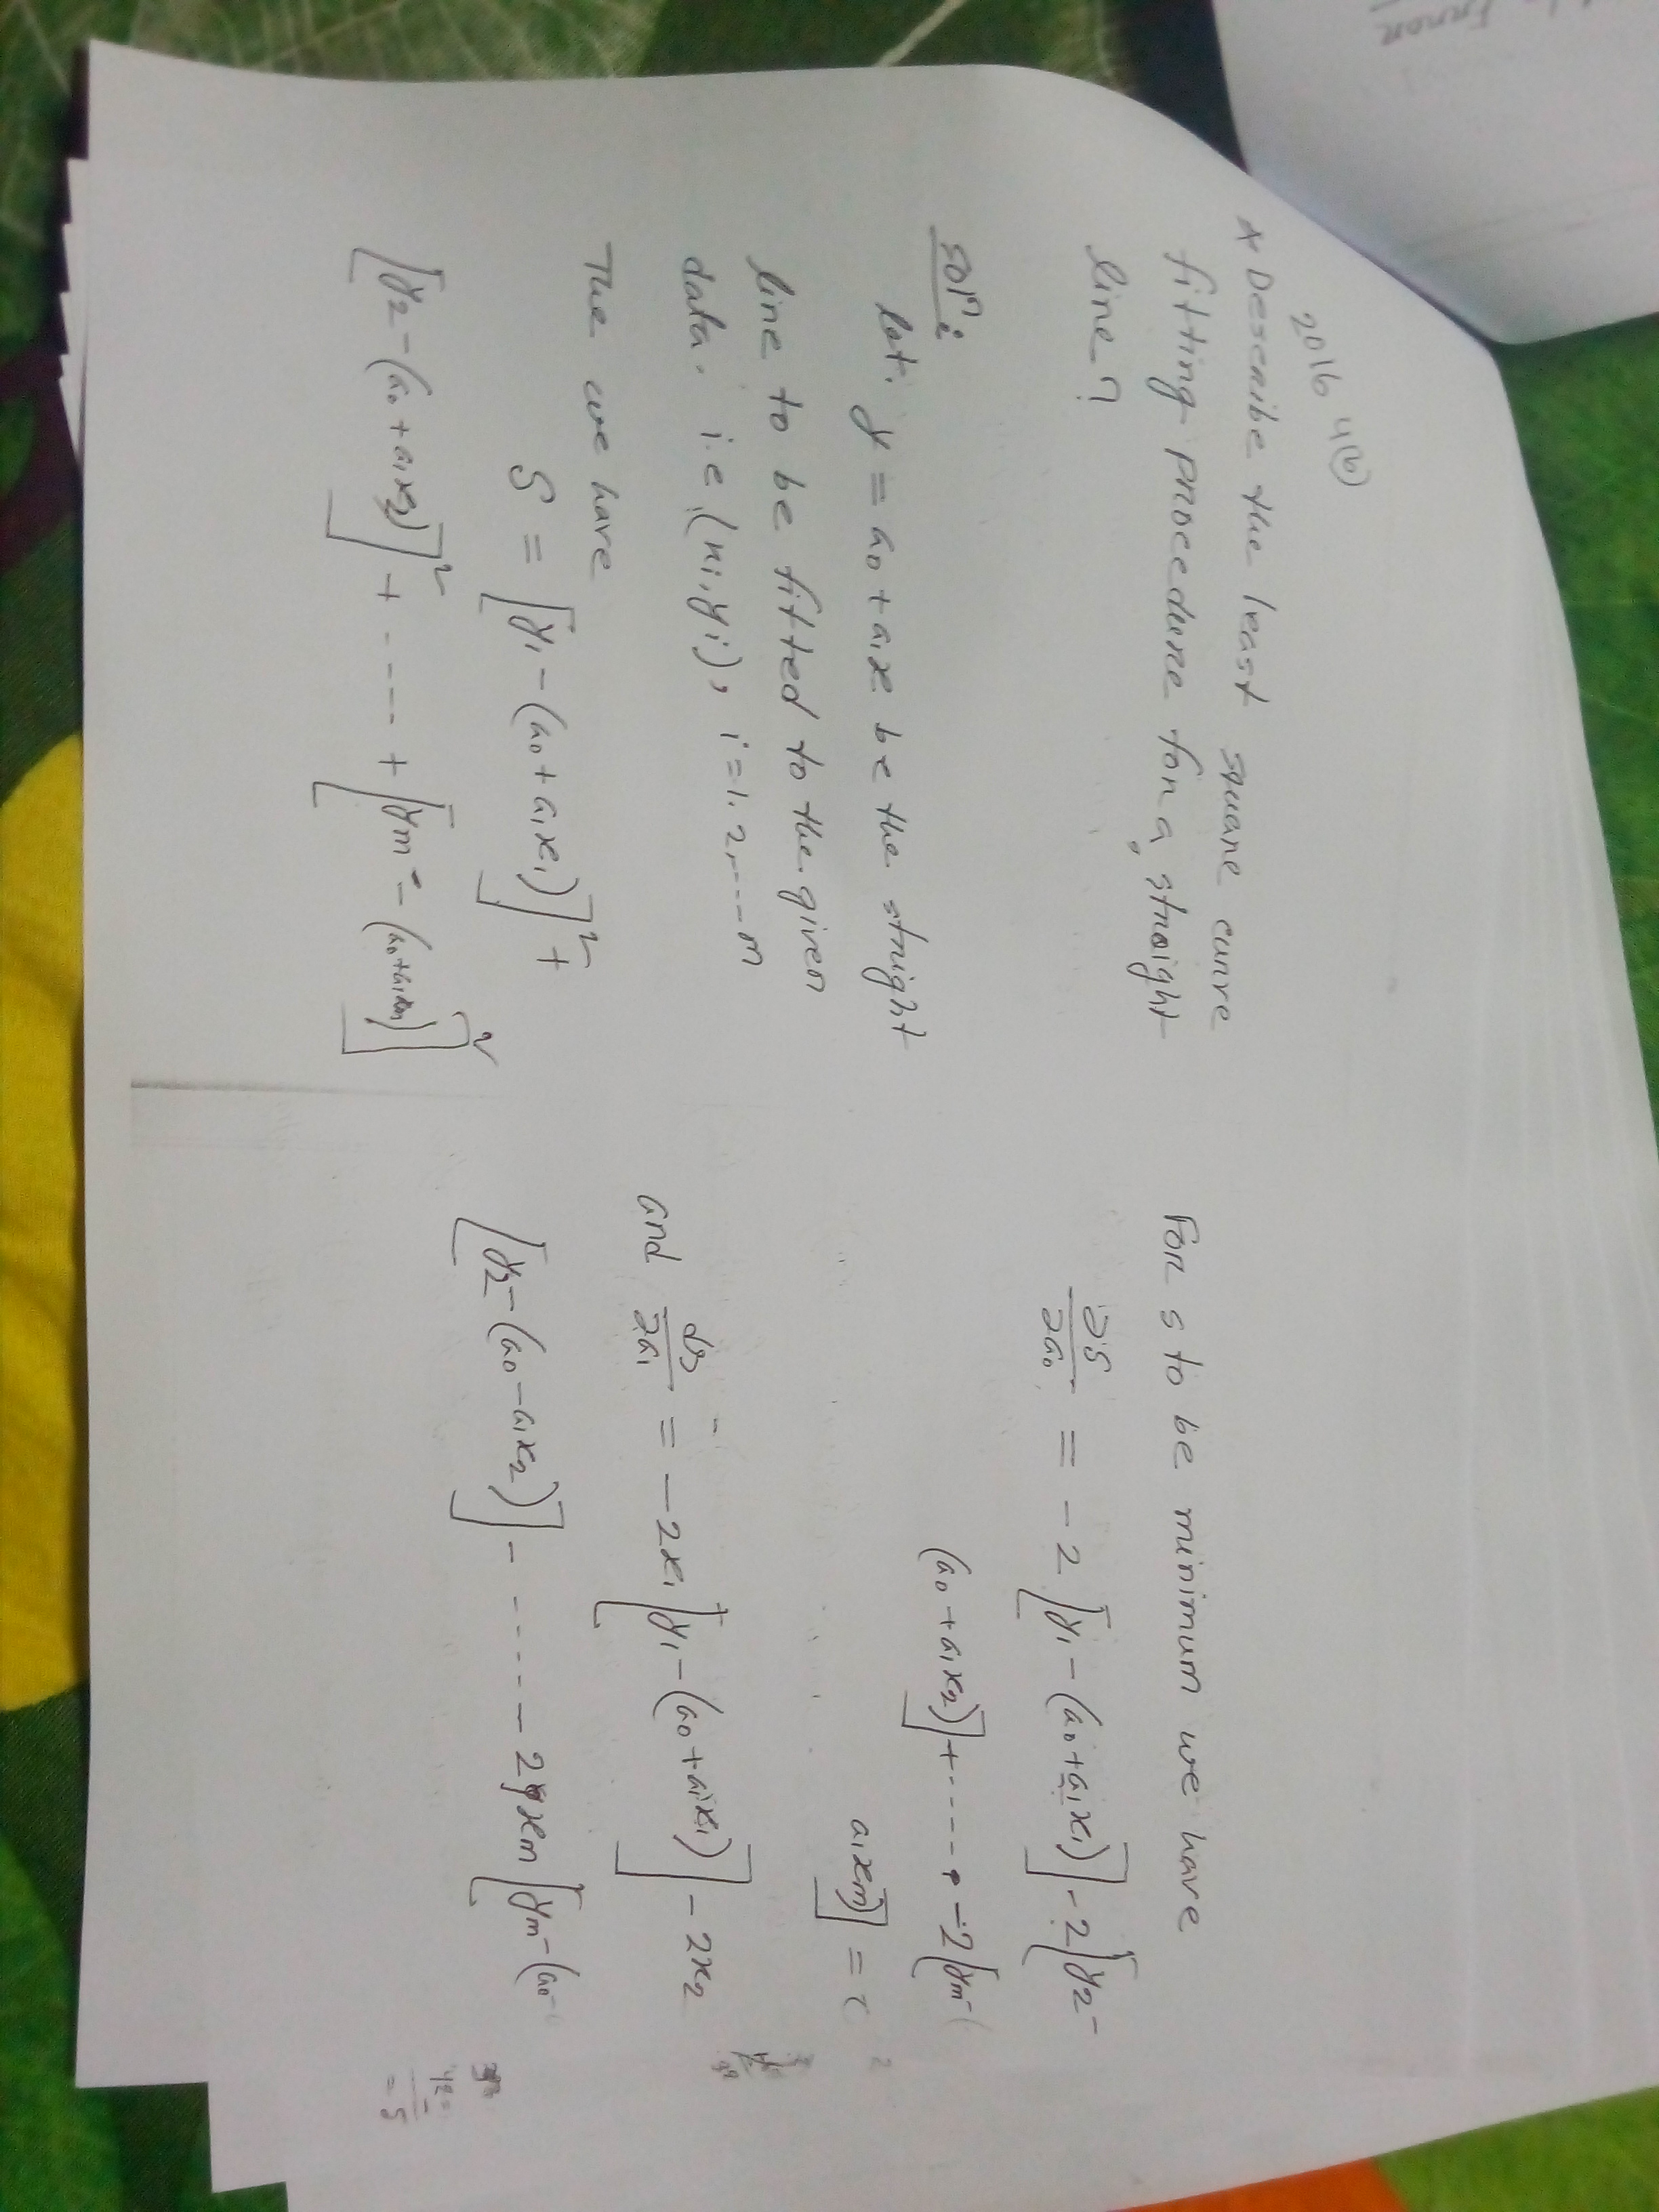 2016 4(b)
* Describe the least square curve
fitting procedure for a straight
line?
Soln:
let. y = a0 + a1x be the stright
line to be fitted to the given
data. i.e (xi, yi), i=1. 2,----m
The we have
S = [y1 - (a0 + a1x1)]² +
[y2 - (a0 + a1x2)]² + ---- + [ym - (a0+a1xm)]²
For s to be minimum we have
∂S/∂a0 = -2 [y1 - (a0 + a1x1)] - 2[y2 -
(a0 + a1x2)] + ----- -2[ym - (
a1xm)] =
and ∂s/∂a1 = -2x1 [y1 - (a0 + a1x1)] - 2x2
[y2 - (a0 - a1x2)] - ----- 2xm [ym - (a0
42
= 5
Error